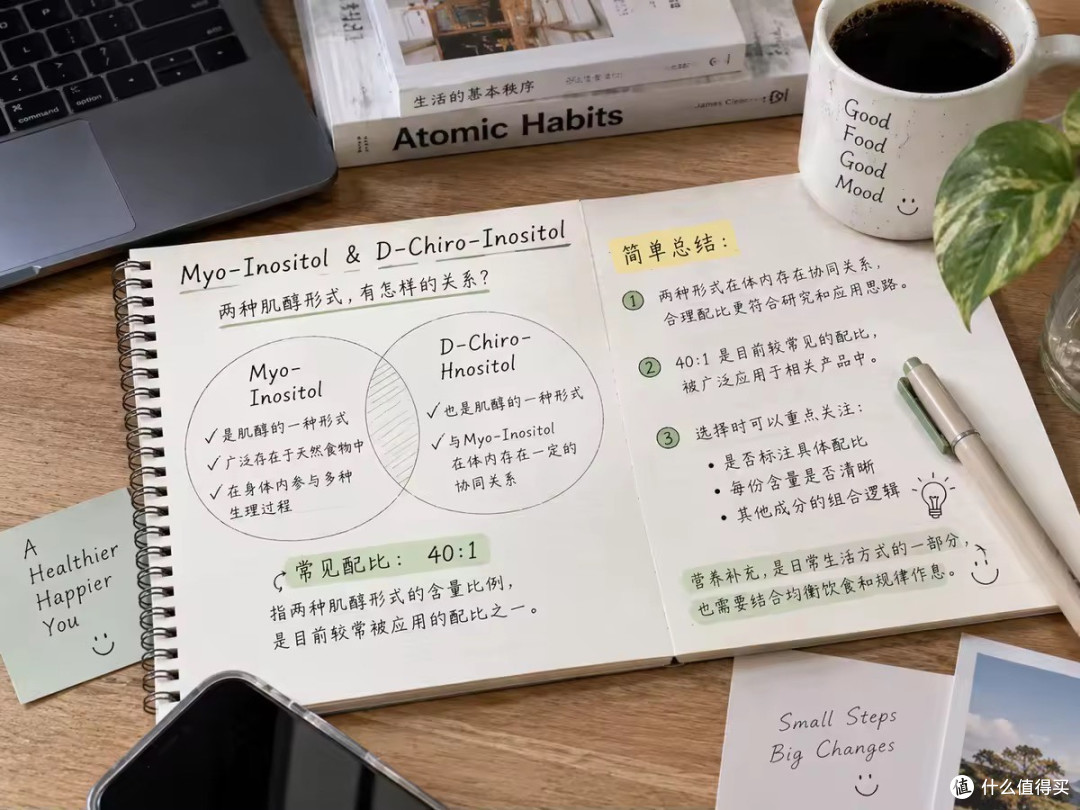 command
option
生活的基本秩序
Atomic Habits
Good
Food
Good
Mood
Myo-Inositol & D-Chiro-Inositol
两种肌醇形式，有怎样的关系？
Myo-
Inositol
✓是肌醇的一种形式
✓广泛存在于天然食物中
✓在身体内参与多种
生理过程
D-Chiro-
Hnositol
✓也是肌醇的一种形式
✓与Myo-Inositol
在体内存在一定的
协同关系
常见配比： 40:1
指两种肌醇形式的含量比例，
是目前较常被应用的配比之一。
简单总结：
① 两种形式在体内存在协同关系，
合理配比更符合研究和应用思路。
② 40:1 是目前较常见的配比，
被广泛应用于相关产品中。
③ 选择时可以重点关注：
• 是否标注具体配比
• 每份含量是否清晰
• 其他成分的组合逻辑
营养补充，是日常生活方式的一部分，
也需要结合均衡饮食和规律作息。
A
Healthier
Happier
You
Small Steps
Big Changes
值 什么值得买